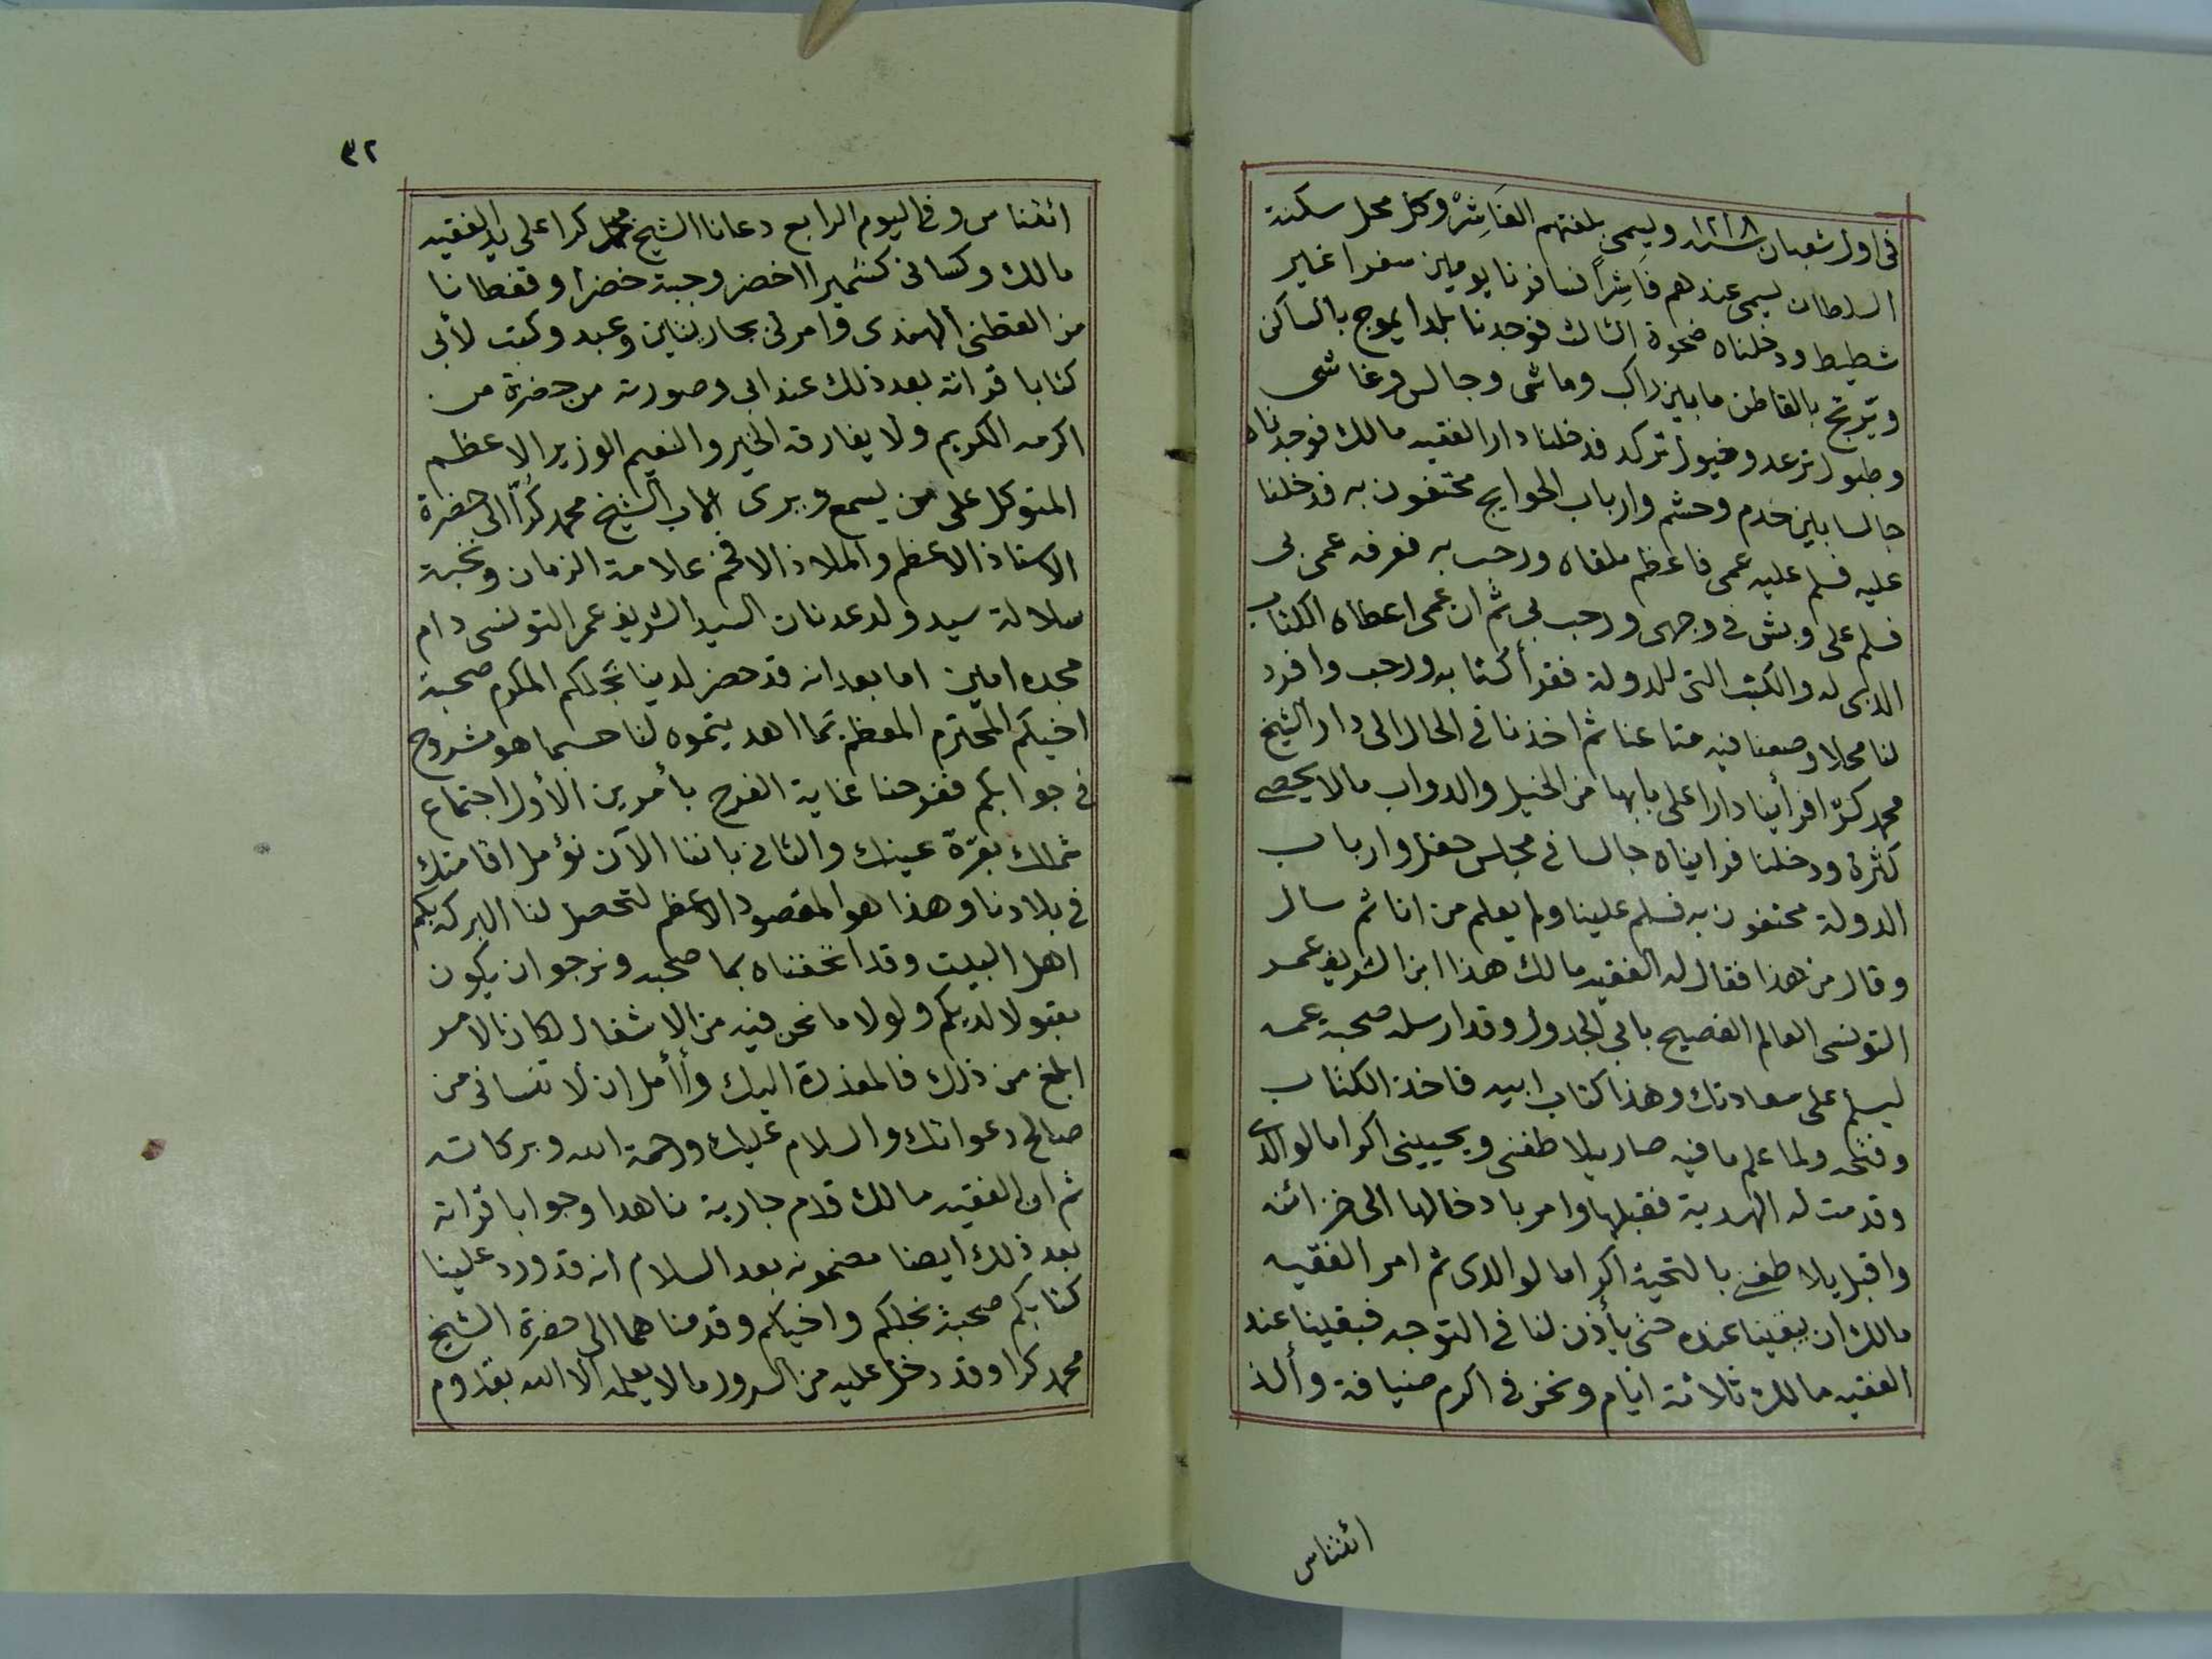 فى اول شعبان سنة ١٢١٨ ويسمى بلغتهم الفَاشِرْ وكل محل سكنه
السلطان يسمى عندهم فَاشِرًا فسافرنا يومين سفرا غير
شطيط ودخلناه ضحوة الثالث فوجدنا بلدا يموج بالساكن
ويرتج بالقاطن ما بين راكب وماشى وجالس وغاشى
وطبول ترعد وخيول تركد فدخلنا دار الفقيه مالك فوجدناه
جالسا بين خدم وحشم وارباب الحوايج محتفون به فدخلنا
عليه فسلم عليه عمى فاعظم ملقاه ورحب به فعرفه عمى بى
فسلم على وبش فى وجهى ورحب بى ثم ان عمى اعطاه الكتاب
الذى له والكتب التى للدولة فقرأ كتابه ورحب وافرد
لنا محلا وضعنا فيه متاعنا ثم اخذنا فى الحال الى دار الشيخ
محمد كرّا فرأينا دارا على بابها من الخيل والدواب مالا يحصى
كثرة ودخلنا فرايناه جالسا فى مجلس حفل وارباب
الدولة محتفون به فسلم علينا ولم يعلم من انا ثم سال
وقال من هذا فقال له الفقيه مالك هذا ابن الشريف عمر
التونسى العالم الفصيح بابى الجدول وقد ارسله صحبة عمه
ليسلم على سعادتك وهذا كتاب ابيه فاخذ الكتاب
وفتحه ولما علم ما فيه صار يلاطفنى ويحيينى اكراما لوالدى
وقدمت له الهدية فقبلها وامر بادخالها الى خزائنه
واقبل يلاطفنى بالتحية اكراما لوالدى ثم امر الفقيه
مالك ان يبقينا عنده حتى يأذن لنا فى التوجه فبقينا عند
الفقيه مالك ثلاثة ايام ونحن فى اكرم ضيافة وألذ
ائتناس
٣٢
ائتناس وفى اليوم الرابع دعانا الشيخ محمد كرا على يد الفقيه
مالك وكسانى كشميرا اخضر وجبة خضرا وقفطانا
من القطنى الهندى وامر لى بجاريتين وعبد وكتب لأبى
كتابا قراته بعد ذلك عند ابى وصورته من حضرة من
اكرمه الكريم ولا يفارقه الخير والنعيم الوزير الاعظم
المتوكل على من يسمع ويرى الاب الشيخ محمد كُرّا الى حضرة
الاستاذ الاعظم والملاذ الافخم علامة الزمان ونخبة
سلالة سيد ولد عدنان السيد الشريف عمر التونسى دام
مجده امين اما بعد انه قد حضر لدينا نجلكم المكرم صحبة
اخيكم المحترم المعظم بما اهديتموه لنا حسبما هو مشروح
فى جوابكم ففرحنا غاية الفرح بأمرين الأول اجتماع
شملك بقرّة عينك والثانى باننا الآن نؤمل اقامتك
فى بلادنا وهذا هو المقصود الاعظم لتحصل لنا البركه بكم
اهل البيت وقد اتحفناه بما صحبه ونرجو ان يكون
مقبولا لديكم ولولا ما نحن فيه من الاشغال لكان الامر
ابلغ من ذلك فالمعذرة اليك وأأمل ان لا تنسانى من
صالح دعواتك والسلام عليك ورحمة الله وبركاته
ثم ان الفقيه مالك قدم جارية ناهدا وجوابا قراته
بعد ذلك ايضا مضمونه بعد السلام انه قد ورد علينا
كتابكم صحبة نجلكم واخيكم وقدمناهما الى حضرة الشيخ
محمد كرا وقد دخل عليه من السرور مالا يعلمه الا الله بقدوم